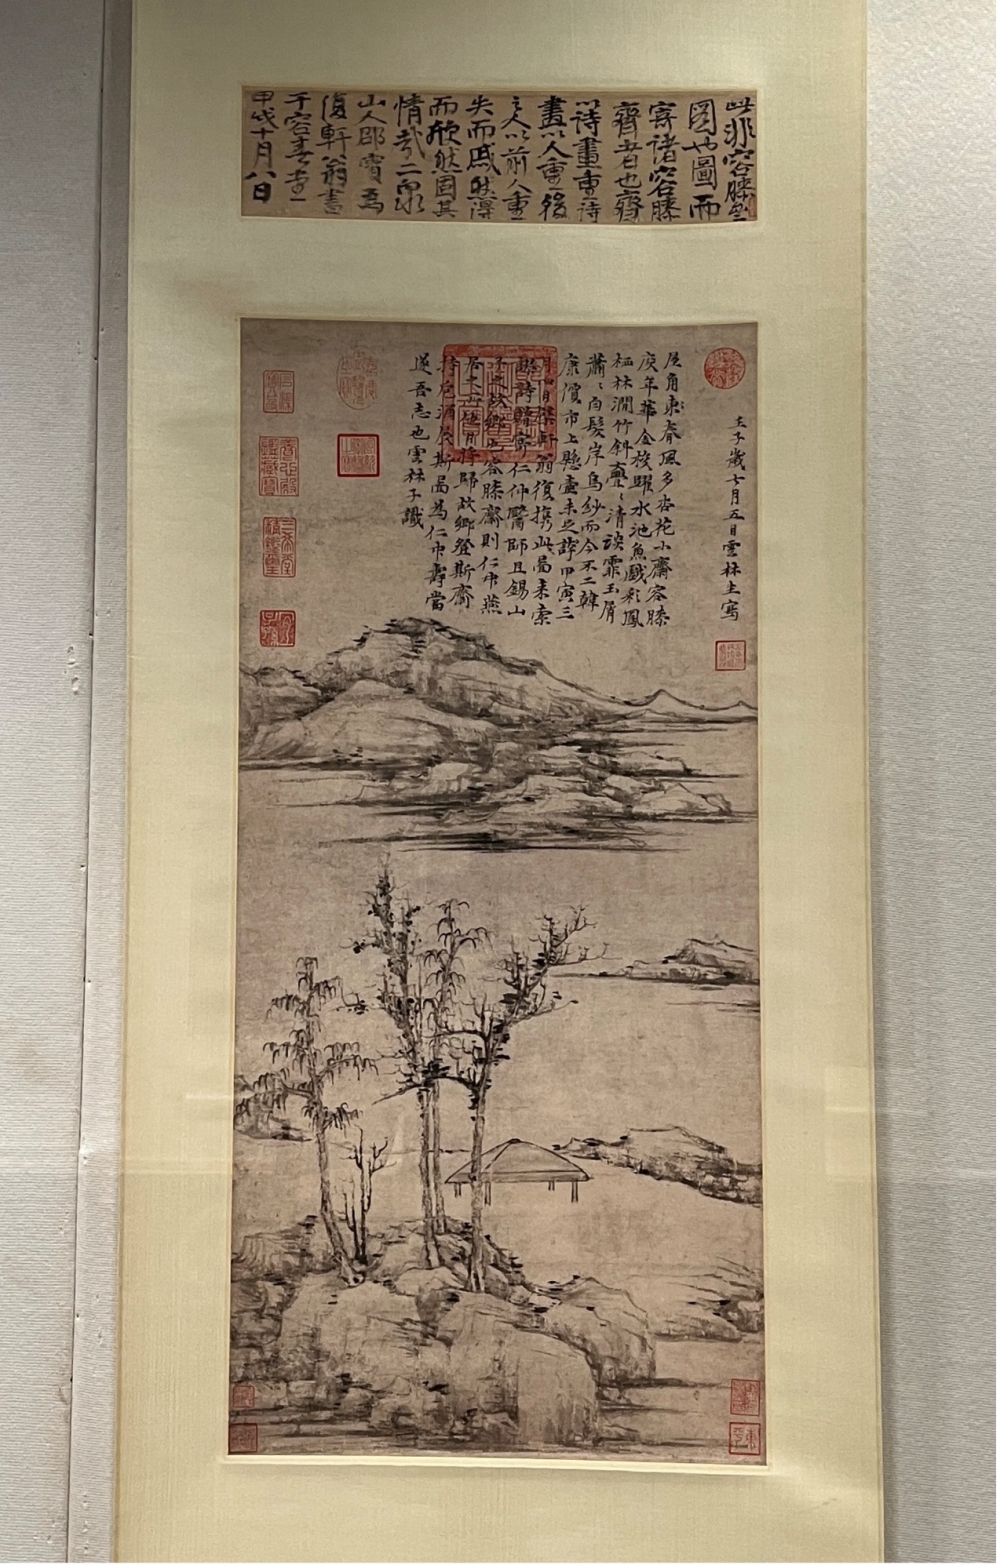 此非容膝齋
圖也圖而
寄諸容膝
齋者也齋
以詩畫重詩
畫以人重後
之人以前人重
失而戚然得
而欣然固其
情哉二泉
山人邵寶為
復軒翁書
于容春堂
甲戌十月八日
壬子歲七月五日雲林生寫
屋角東春風多杏花小齋容膝
度年華金梭躍水池魚戲彩鳳
栖林澗竹斜亹〻清談霏玉屑
蕭〻白髮岸烏紗而今不二韓
康價市上懸壺未足誇甲寅三
月四日檗軒翁復携此圖来索
謬詩贈寄仁仲醫師且錫山
予之故鄉也容膝齋則仁仲燕
居之所他日將歸故鄉登斯齋
持巵酒展斯圖為仁仲壽當
遂吾志也雲林子識